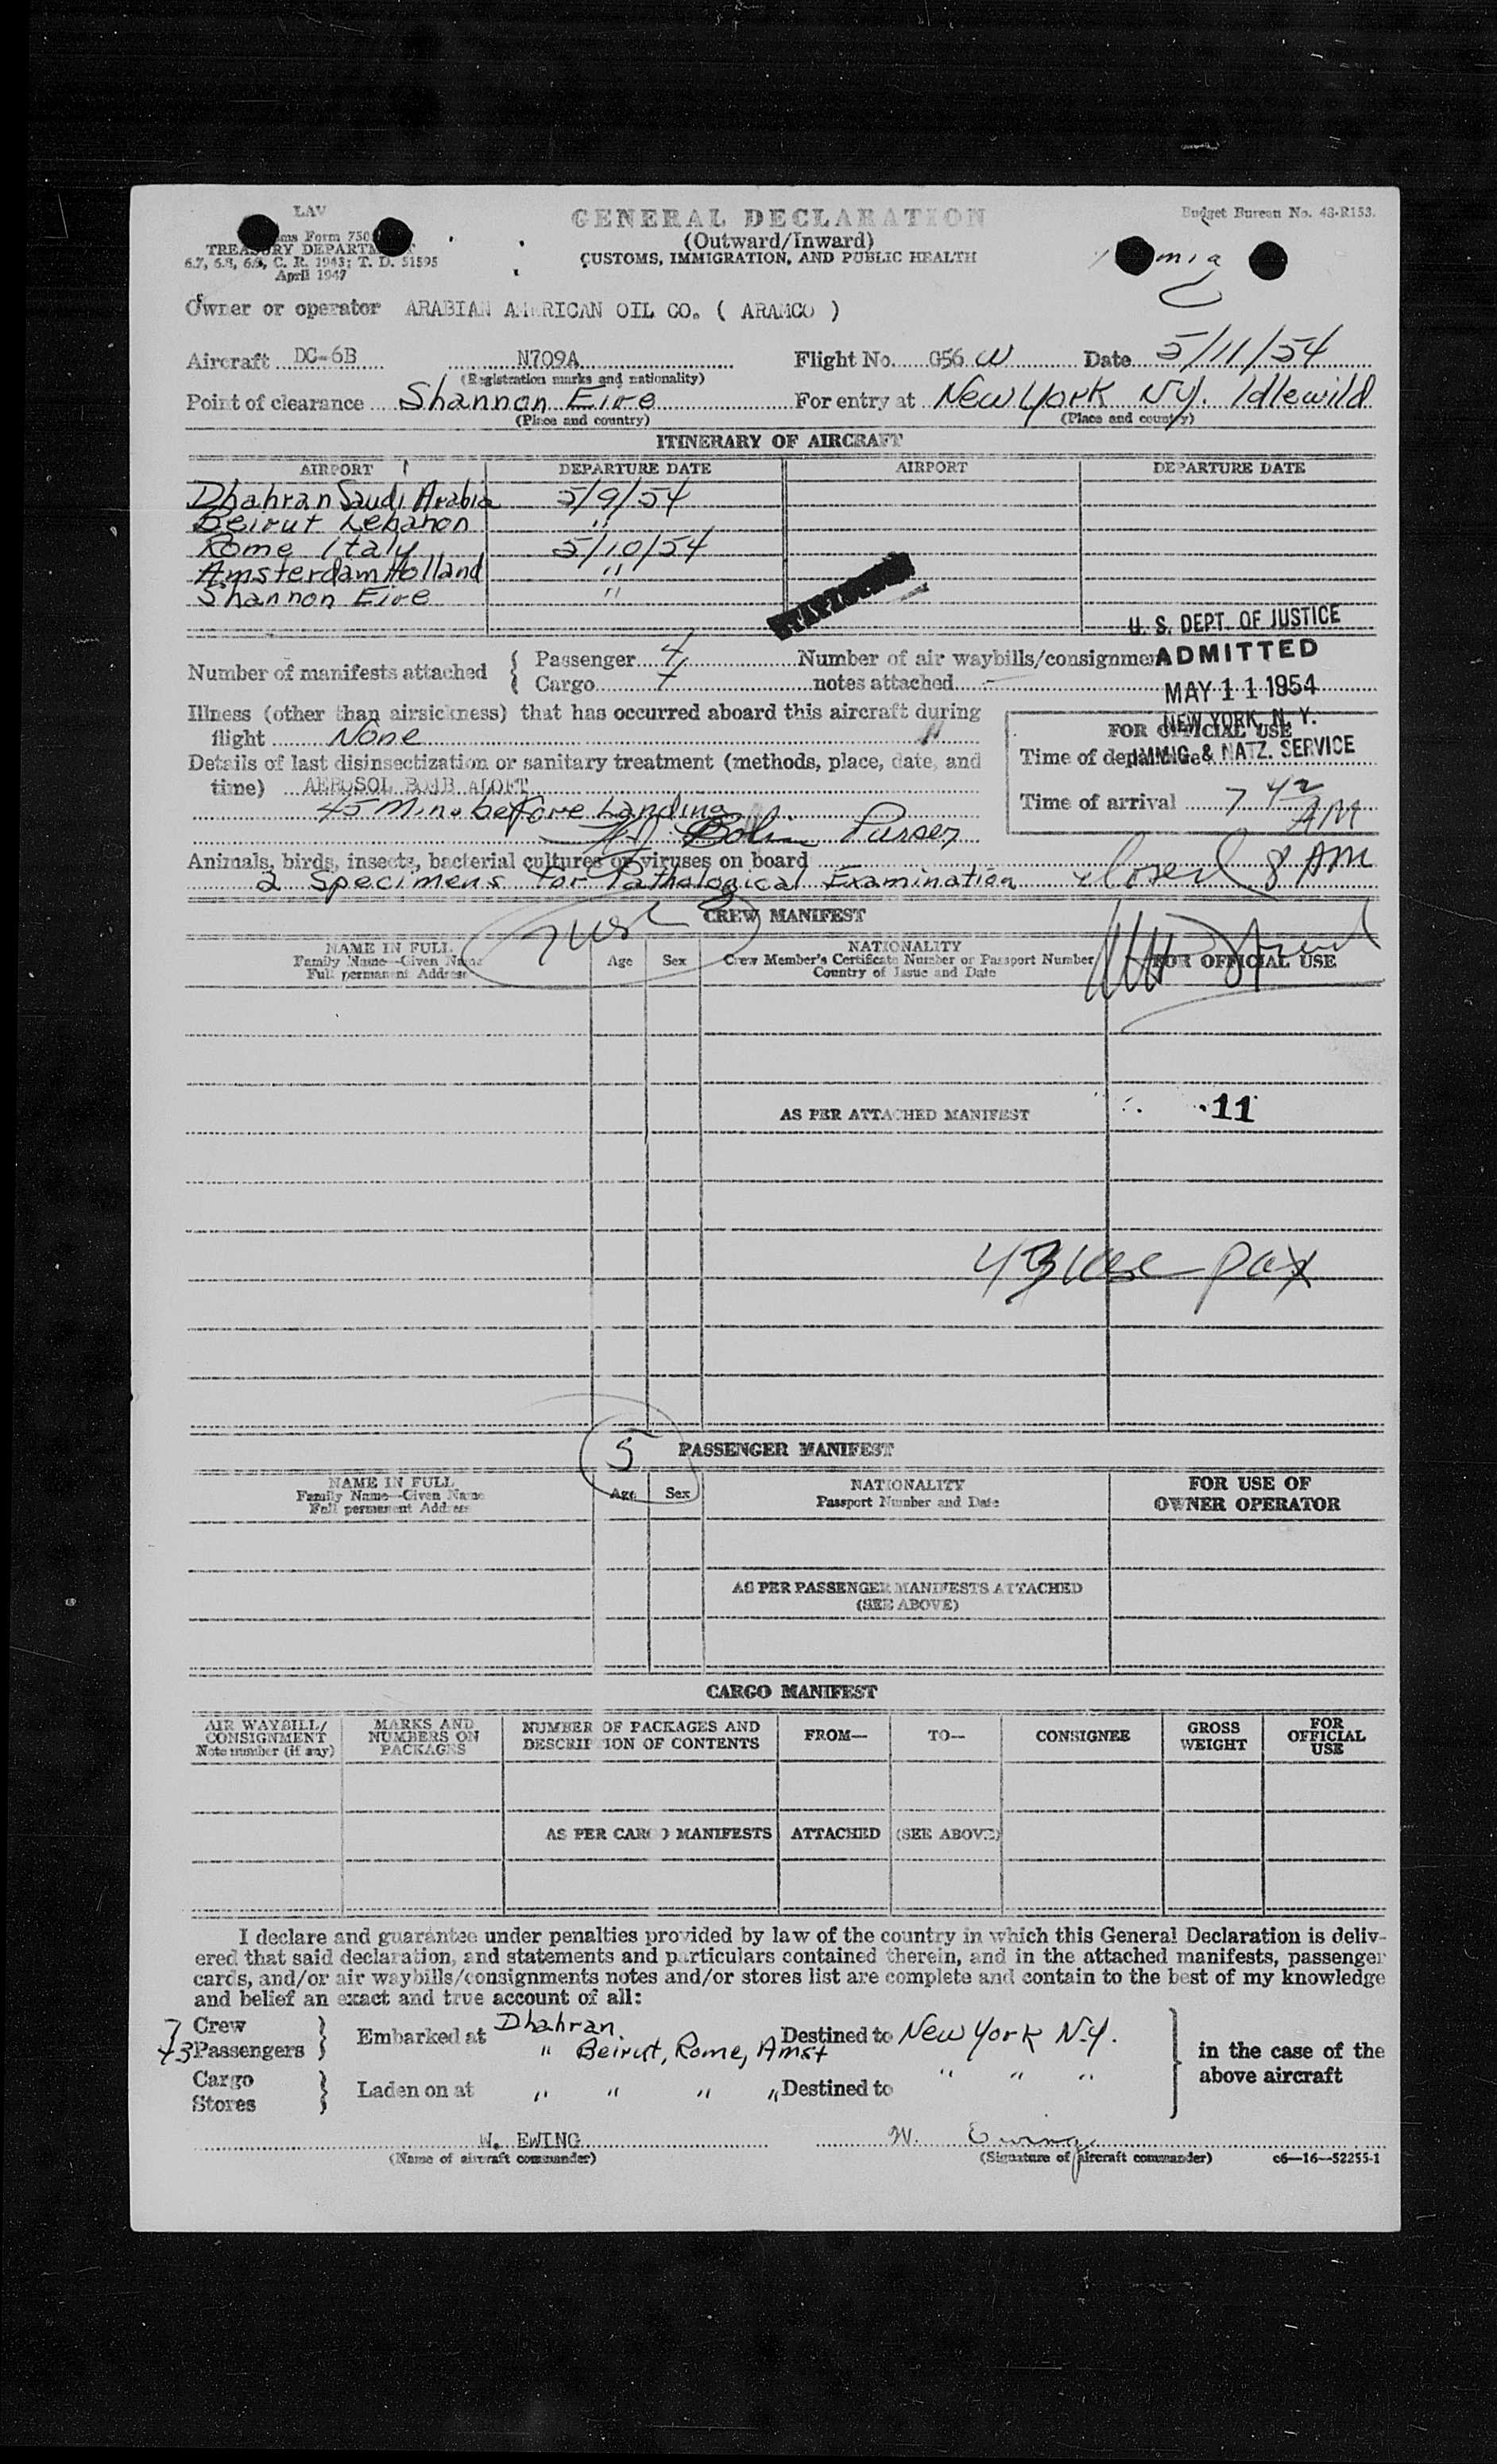 LAV
GENERAL DECLARATION
Budget Bureau No. 48-R153.
ms Form 750
(Outward/Inward)
TREASURY DEPARTM
CUSTOMS, IMMIGRATION, AND PUBLIC HEALTH
6.7, 6.8, 6.9, C. R. 1943; T. D. 51595
April 1947
Owner or operator ARABIAN AMERICAN OIL CO. ( ARAMCO )
Aircraft DC-6B N709A Flight No. 056 W Date 5/11/54
(Registration marks and nationality)
Point of clearance Shannon Eire For entry at New York NY. Idlewild
(Place and country) (Place and country)
ITINERARY OF AIRCRAFT
AIRPORT DEPARTURE DATE AIRPORT DEPARTURE DATE
Dhahran Saudi Arabia 5/9/54
Beirut Lebanon "
Rome Italy 5/10/54
Amsterdam Holland "
Shannon Eire "
U. S. DEPT. OF JUSTICE
ADMITTED
MAY 11 1954
NEW YORK, N. Y.
IMMIG. & NATZ. SERVICE
Number of manifests attached { Passenger 4 Number of air waybills/consignmen
Cargo 7 notes attached -
Illness (other than airsickness) that has occurred aboard this aircraft during
flight None
FOR OFFICIAL USE
Details of last disinsectization or sanitary treatment (methods, place, date, and
Time of departure
time) AEROSOL BOMB ALOFT
45 Min. before Landing
Time of arrival 7 42 AM
Bolin Purser
Animals, birds, insects, bacterial cultures or viruses on board
2 Specimens for Pathological Examination closed 8 AM
CREW MANIFEST
NAME IN FULL
Family Name—Given Name
Full permanent Address
Age Sex
NATIONALITY
Crew Member's Certificate Number or Passport Number
Country of Issue and Date
FOR OFFICIAL USE
AS PER ATTACHED MANIFEST 11
43 pax
5
PASSENGER MANIFEST
NAME IN FULL
Family Name—Given Name
Full permanent Address
Age Sex
NATIONALITY
Passport Number and Date
FOR USE OF
OWNER OPERATOR
AS PER PASSENGER MANIFESTS ATTACHED
(SEE ABOVE)
CARGO MANIFEST
AIR WAYBILL/
CONSIGNMENT
Note number (if any)
MARKS AND
NUMBERS ON
PACKAGES
NUMBER OF PACKAGES AND
DESCRIPTION OF CONTENTS
FROM—
TO—
CONSIGNEE
GROSS
WEIGHT
FOR
OFFICIAL
USE
AS PER CARGO MANIFESTS ATTACHED (SEE ABOVE)
I declare and guarantee under penalties provided by law of the country in which this General Declaration is deliv-
ered that said declaration, and statements and particulars contained therein, and in the attached manifests, passenger
cards, and/or air waybills/consignments notes and/or stores list are complete and contain to the best of my knowledge
and belief an exact and true account of all:
7 Crew
43 Passengers } Embarked at Dhahran. Destined to New York N.Y.
" Beirut, Rome, Amst
in the case of the
above aircraft
Cargo
Stores } Laden on at " " " " Destined to " " "
W. EWING W. Ewing
(Name of aircraft commander) (Signature of aircraft commander) c6—16—52255-1